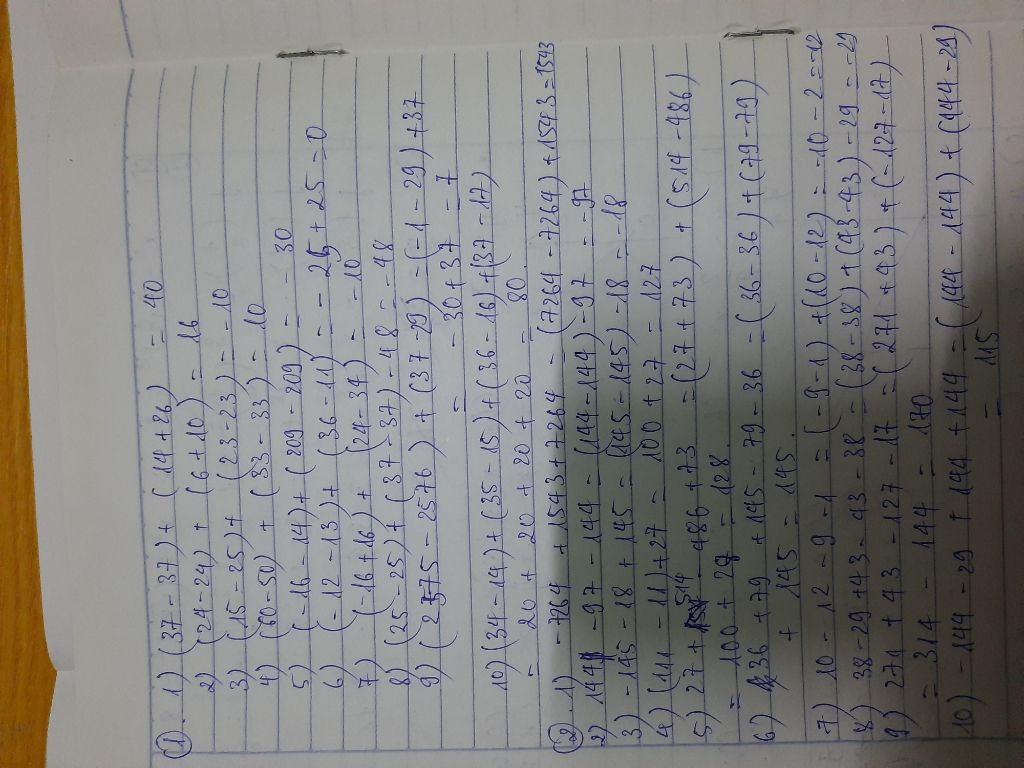 ① 1) (37 - 37) + (14 + 26) = 40
2) (24 - 24) + (6 + 10) = 16
3) (15 - 25) + (23 - 23) = - 10
4) (60 - 50) + (33 - 33) = 10
5) (- 16 - 14) + (209 - 209) = - 30
6) (- 12 - 13) + (36 - 11) = - 25 + 25 = 0
7) (- 16 + 16) + (24 - 34) = - 10
8) (25 - 25) + (37 - 37) - 48 = - 48
9) (2575 - 2576) + (37 - 29) = (- 1 - 29) + 37
= - 30 + 37 = 7
10) (34 - 14) + (35 - 15) + (36 - 16) + (37 - 17)
= 20 + 20 + 20 + 20 = 80
② 1) - 7264 + 1543 + 7264 = (7264 - 7264) + 1543 = 1543
2) 144 - 97 - 144 = (144 - 144) - 97 = - 97
3) - 145 - 18 + 145 = (145 - 145) - 18 = - 18
4) (111 - 11) + 27 = 100 + 27 = 127
5) 27 + 514 - 486 + 73 = (27 + 73) + (514 - 486)
= 100 + 28 = 128
6) 36 + 79 + 145 - 79 - 36 = (36 - 36) + (79 - 79)
+ 145 = 145.
7) 10 - 12 - 9 - 1 = (- 9 - 1) + (10 - 12) = - 10 - 2 = - 12
8) 38 - 29 + 43 - 43 - 38 = (38 - 38) + (43 - 43) - 29 = - 29
9) 271 + 43 - 127 - 17 = (271 + 43) + (- 127 - 17)
= 314 - 144 = 170
10) - 144 - 29 + 144 + 144 = (144 - 144) + (144 - 29)
= 115